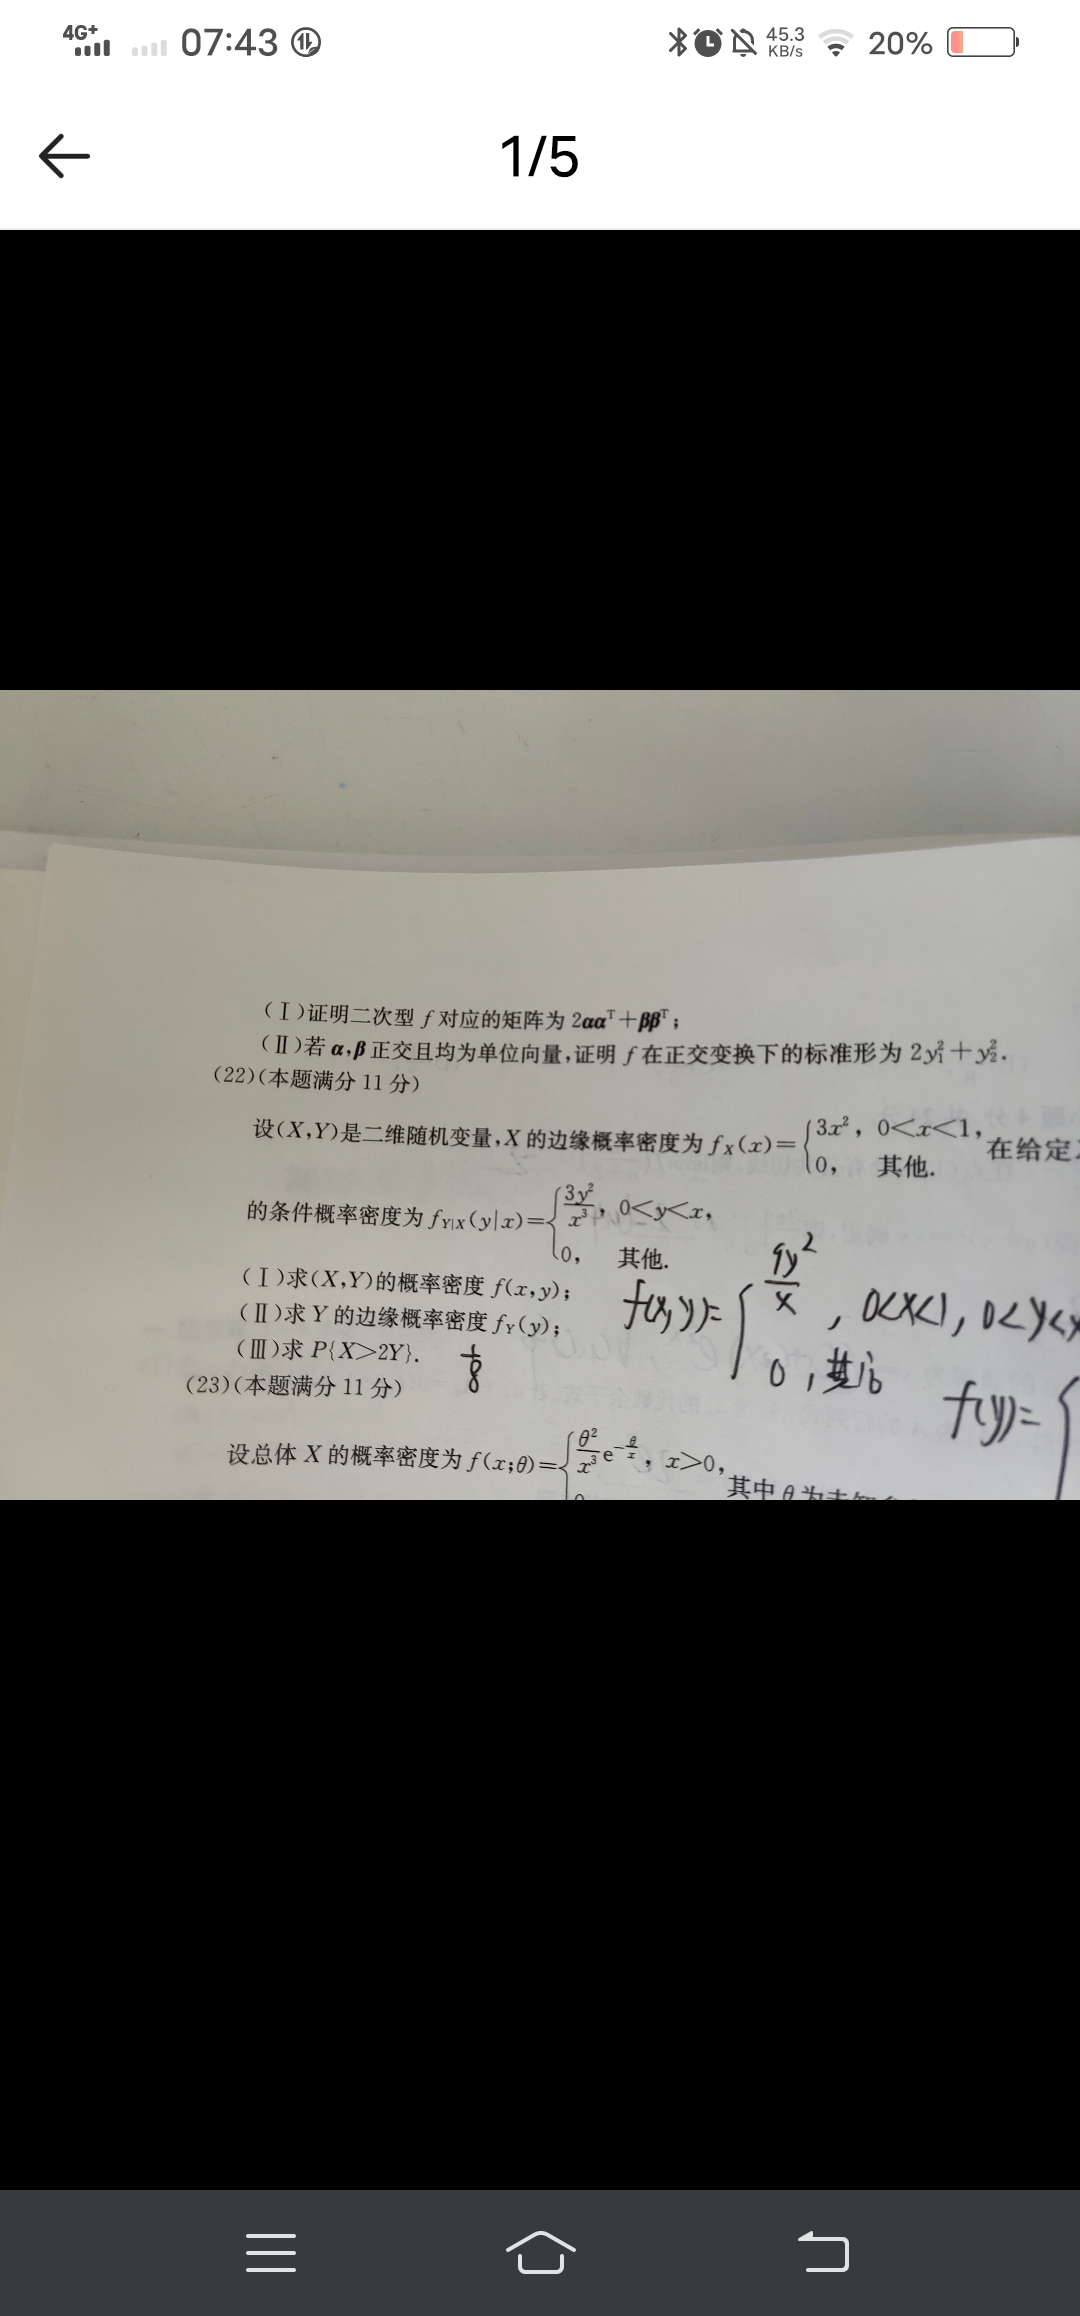 4G+ 07:43 45.3 KB/s 20%
1/5
(Ⅰ)证明二次型 f 对应的矩阵为 2αα^T+ββ^T;
(Ⅱ)若 α,β 正交且均为单位向量,证明 f 在正交变换下的标准形为 2y₁²+y₂².
(22)(本题满分 11 分)
设(X,Y)是二维随机变量,X 的边缘概率密度为 f_X(x)={3x², 0<x<1, 0, 其他. 在给定
的条件概率密度为 f_{Y|X}(y|x)={3y²/x³, 0<y<x, 0, 其他.
(Ⅰ)求(X,Y)的概率密度 f(x,y);
f(x,y)={9y²/x, 0<x<1, 0<y<x 0, 其他
(Ⅱ)求 Y 的边缘概率密度 f_Y(y);
(Ⅲ)求 P{X>2Y}. 1/8
f(y)={
(23)(本题满分 11 分)
设总体 X 的概率密度为 f(x;θ)={θ²/x³ e^{-θ/x}, x>0, 其中 θ 为未知